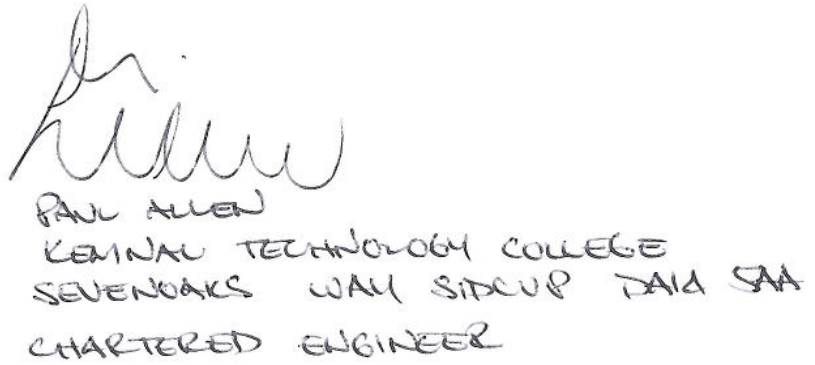 PAUL ALLEN
KEMNAL TECHNOLOGY COLLEGE
SEVENOAKS WAY SIDCUP DA14 5AA
CHARTERED ENGINEER